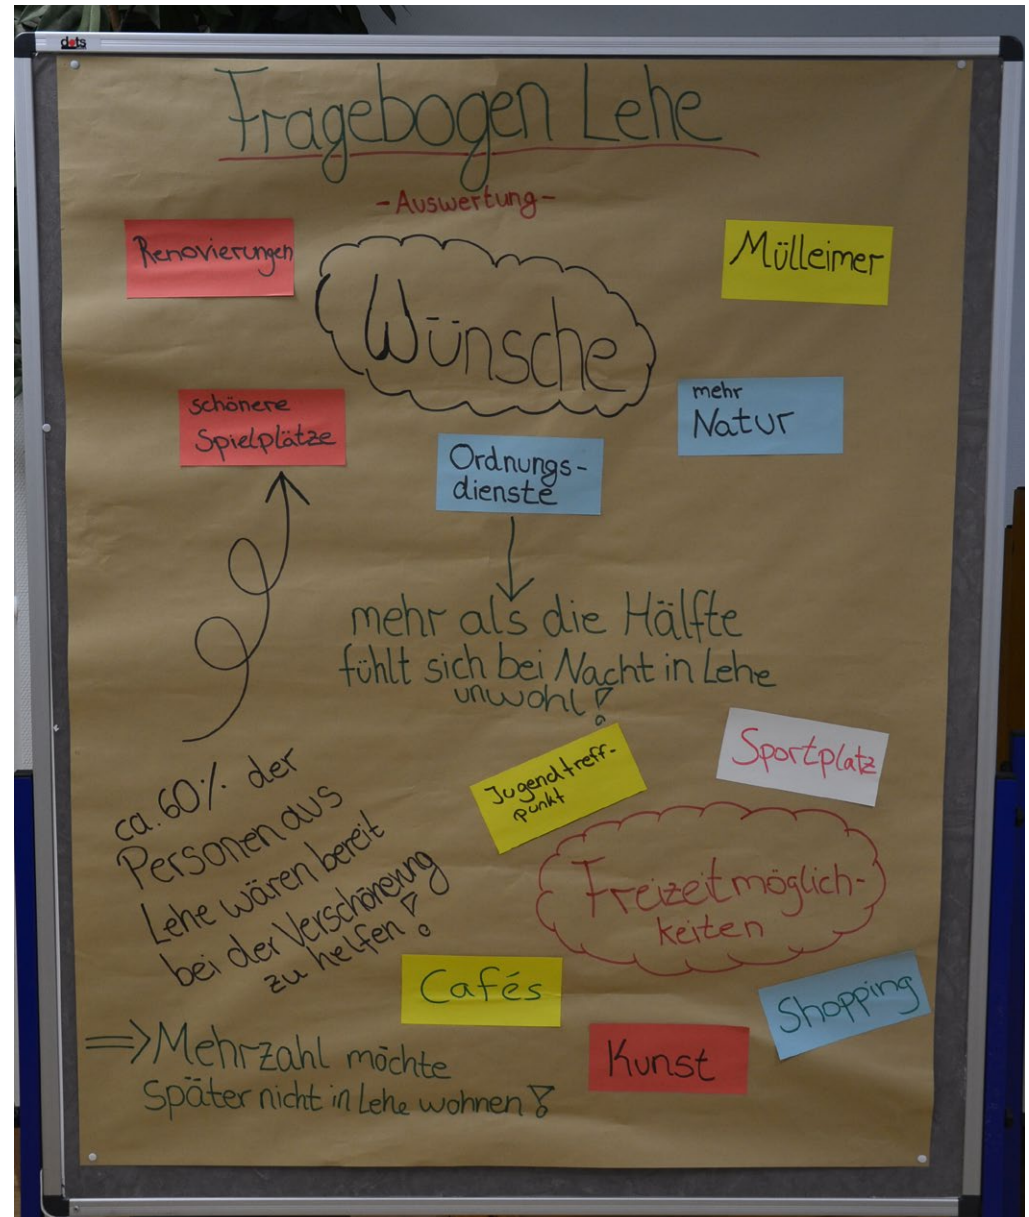 dots
Fragebogen Lehe
- Auswertung -
Renovierungen
Mülleimer
Wünsche
schönere
Spielplätze
mehr
Natur
Ordnungs-
dienste
mehr als die Hälfte
fühlt sich bei Nacht in Lehe
unwohl!
Jugendtreff-
punkt
Sportplatz
ca. 60% der
Personen aus
Lehe wären bereit
bei der Verschönerung
zu helfen!
Freizeitmöglich-
keiten
Cafés
Shopping
Kunst
⇒ Mehrzahl möchte
später nicht in Lehe wohnen!